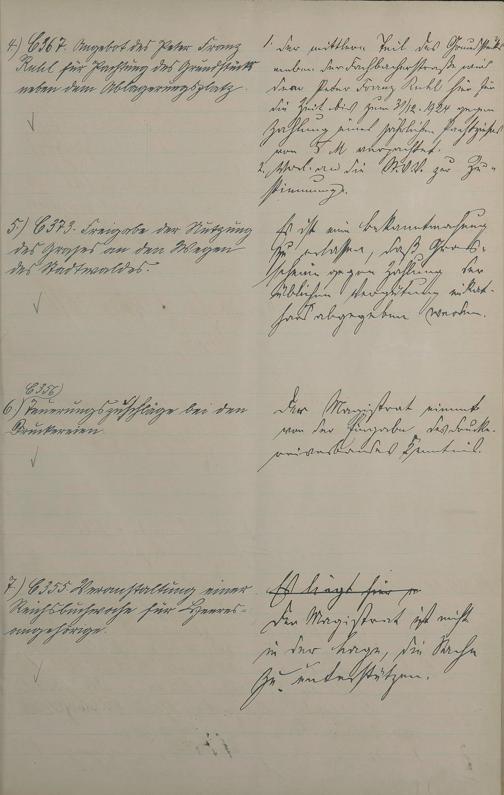 4.) C367. Angebot des Peter Franz
Ruhl für Pachtung des Grundstücks
neben dem Ablagerungsplatz.
1. Der mittlere Teil des Grundstücks
neben der Fachbacherstraße wird
dem Peter Franz Ruhl hier für
die Zeit bis zum 31/12. 1924 gegen
Zahlung eines jährlichen Pachtzinses
von 5 M verpachtet.
2. an die St.V.V. zur Zu-
stimmung.
5.) C373. Freigabe der Nutzung
des Grases an den Wegen
des Stadtwaldes.
Es ist eine Bekanntmachung
zu erlassen, daß Gras-
scheine gegen Zahlung der
üblichen Vergütung im Rat-
haus abgegeben werden.
C356)
6.) Teuerungszuschläge bei den
Druckereien.
Der Magistrat nimmt
von der Eingabe des Drucke-
reiverbandes Kenntnis.
7.) C355. Veranstaltung einer
Reichsbuchwoche für Heeres-
angehörige.
Es liegt hier
Der Magistrat ist nicht
in der Lage, die Sache
zu unterstützen.